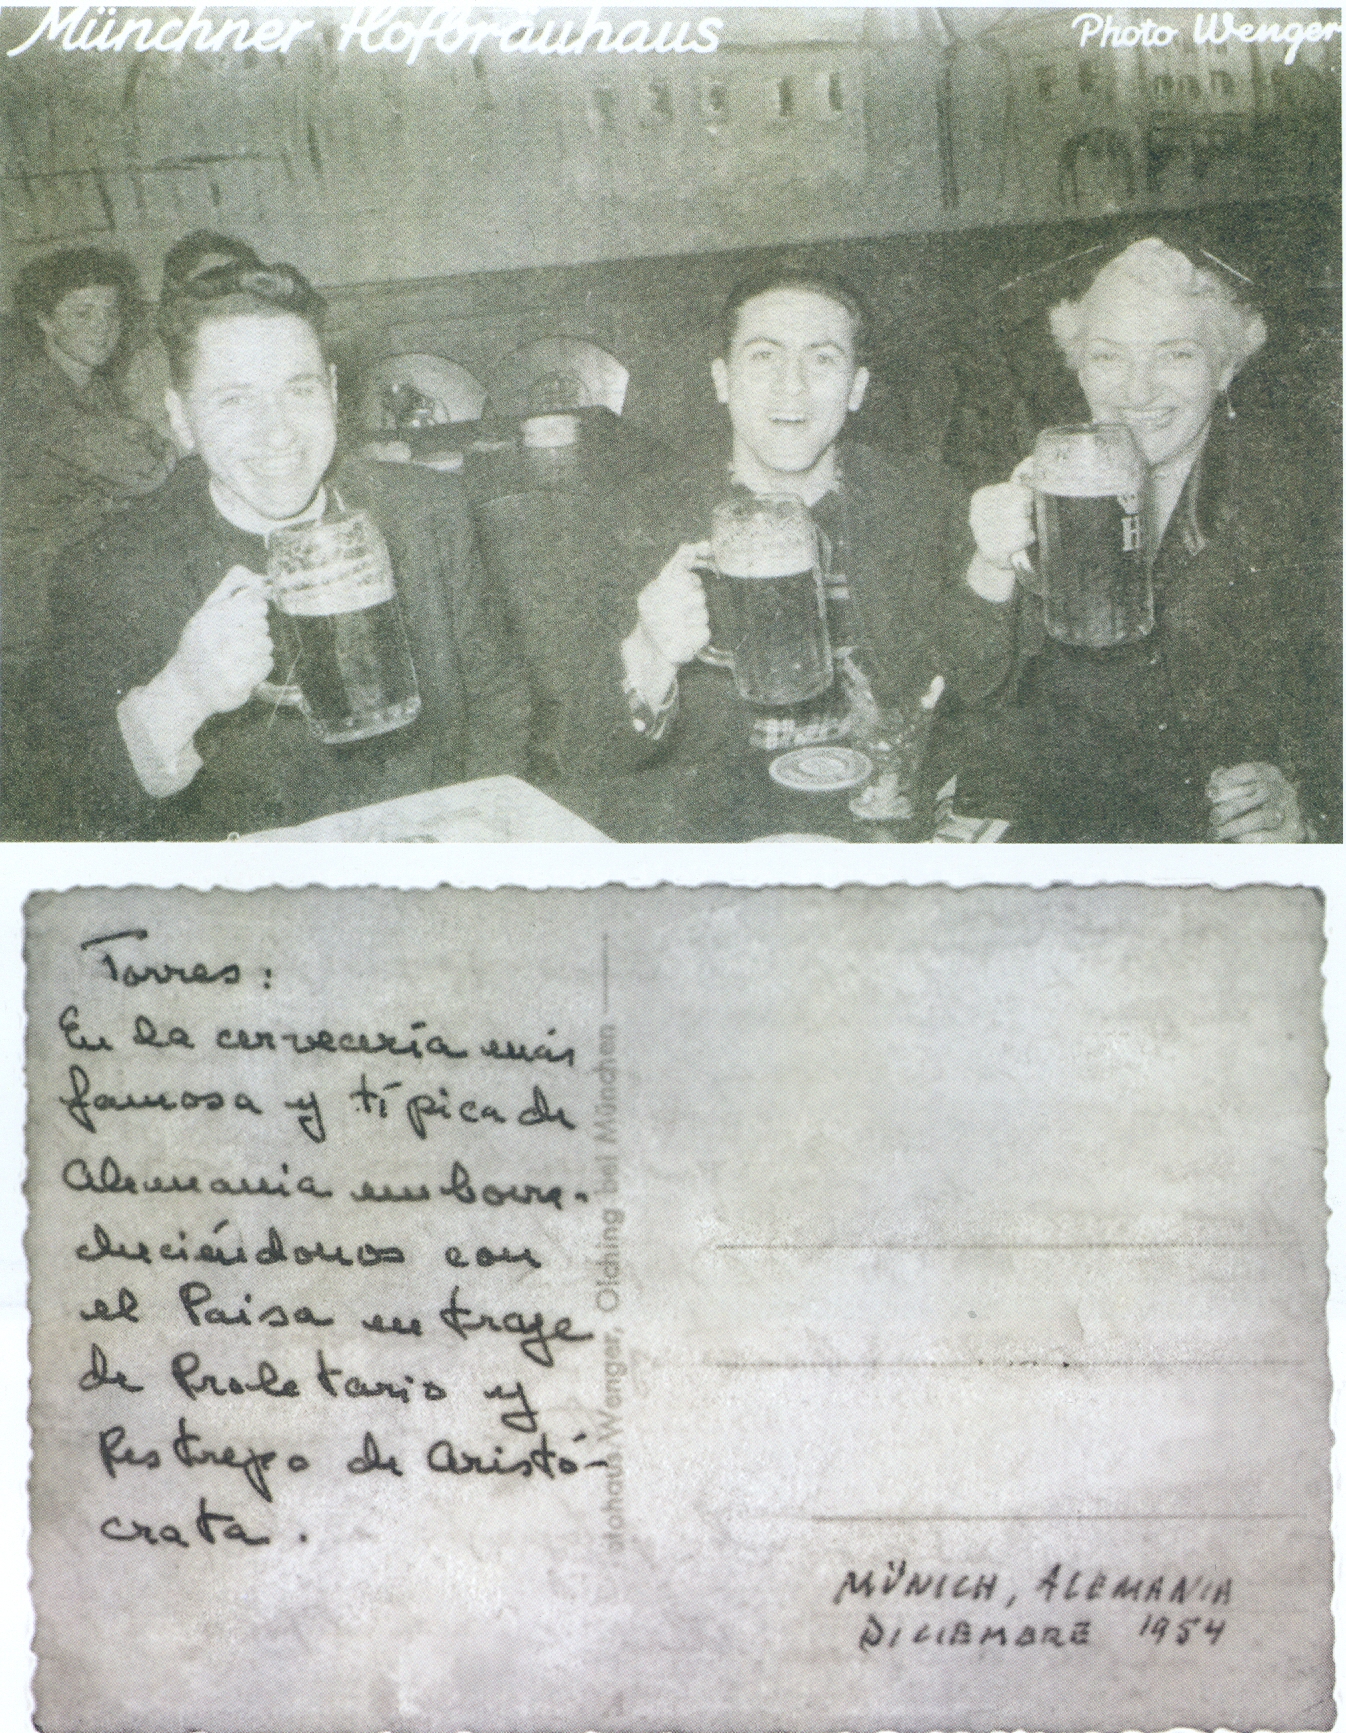 Münchner Hofbräuhaus
Photo Wenger
H
Torres:
En la cervecería más
famosa y típica de
Alemania emborra-
chuciéndonos con
el Paisa en traje
de Proletario y
Restrepo de Aristó-
crata.
Johaus Wenger, Olching bei München
MÜNICH, ALEMANIA
DICIEMBRE 1954